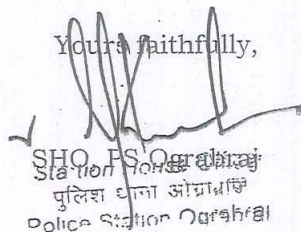 Yours faithfully,
SHO, PS Ograbraj
Station House
पुलिश थाना ओग्राब्राज
Police Station Ograbraj